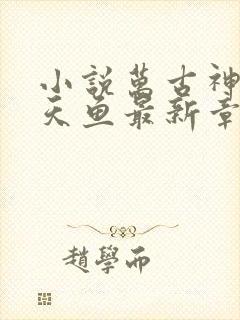 小説萬古神
天魚最新章
趙學而